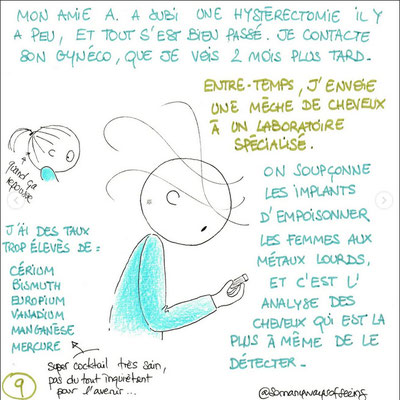 MON AMIE A. A SUBI UNE HYSTÉRECTOMIE IL Y
A PEU, ET TOUT S'EST BIEN PASSÉ. JE CONTACTE
SON GYNÉCO, QUE JE VOIS 2 MOIS PLUS TARD.
ENTRE-TEMPS, J'ENVOIE
UNE MÈCHE DE CHEVEUX
À UN LABORATOIRE
SPÉCIALISÉ.
quand ça
repousse
ON SOUPÇONNE
LES IMPLANTS
D'EMPOISONNER
LES FEMMES AUX
MÉTAUX LOURDS,
ET C'EST L'
ANALYSE DES
CHEVEUX QUI EST LA
PLUS À MÊME DE LE
DÉTECTER.
J'AI DES TAUX
TROP ÉLEVÉS DE :
CÉRIUM
BISMUTH
EUROPIUM
VANADIUM
MANGANÈSE
MERCURE
super cocktail très sain,
pas du tout inquiétant
pour l'avenir...
9
@somanywaysoffeeing